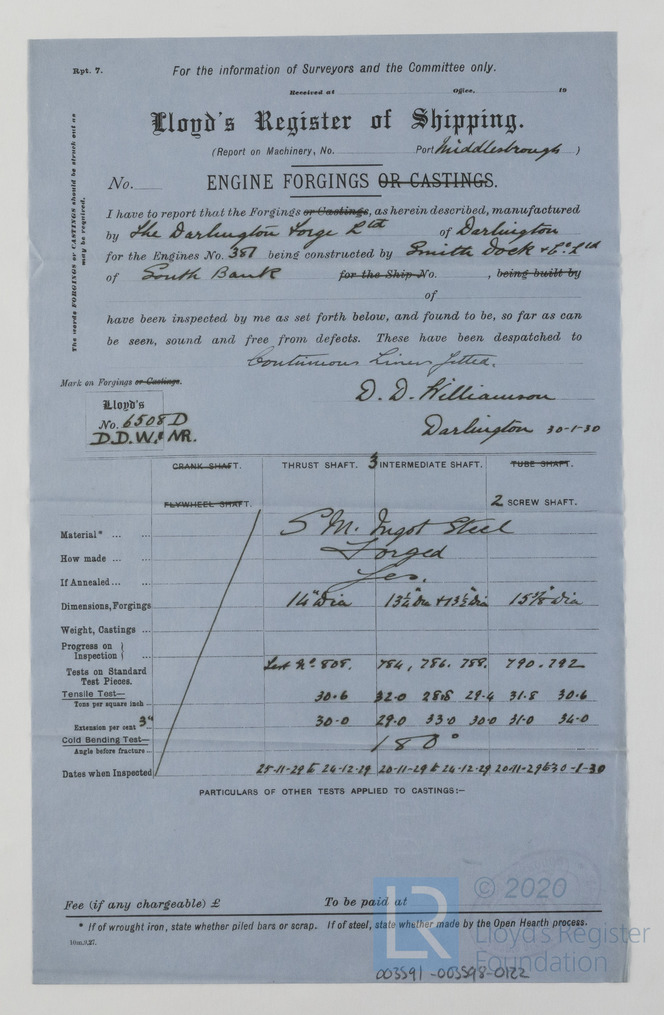 Rpt. 7.
For the information of Surveyors and the Committee only.
Received at Office, 19
Lloyd's Register of Shipping.
(Report on Machinery, No. Port Middlesbrough )
No. ENGINE FORGINGS OR CASTINGS.
The words FORGINGS or CASTINGS should be struck out as
may be required.
I have to report that the Forgings or Castings, as herein described, manufactured
by The Darlington Forge Ltd of Darlington
for the Engines No. 387 being constructed by Smith Dock & Co Ltd
of South Bank for the Ship No. , being built by
of
have been inspected by me as set forth below, and found to be, so far as can
be seen, sound and free from defects. These have been despatched to
Continuous Liners fitted.
Mark on Forgings or Castings.
D. D. Williamson
Lloyd's
No. 6508 D
D.D.W. & NR.
Darlington 30-1-30
CRANK SHAFT. THRUST SHAFT. 3 INTERMEDIATE SHAFT. TUBE SHAFT.
FLYWHEEL SHAFT. 2 SCREW SHAFT.
Material* ... ... S. M. Ingot Steel
How made ... ... Forged
If Annealed ... ... Yes.
Dimensions, Forgings 14" Dia 13¼" Dia & 13½" Dia 15⅝" Dia
Weight, Castings ...
Progress on
Inspection
Tests on Standard
Test Pieces. Test No. 808. 784, 786. 788. 790. 792
Tensile Test—
Tons per square inch ... 30.6 32.0 28.8 29.4 31.8 30.6
Extension per cent 3" 30.0 29.0 33.0 30.0 31.0 34.0
Cold Bending Test—
Angle before fracture ... 180°
Dates when Inspected 25-11-29 to 24-12-29 20-11-29 to 24-12-29 20-11-29 to 30-1-30
PARTICULARS OF OTHER TESTS APPLIED TO CASTINGS:—
Fee (if any chargeable) £ To be paid at
* If of wrought iron, state whether piled bars or scrap. If of steel, state whether made by the Open Hearth process.
10m.,9,27.
LR
© 2020
Lloyd's Register
Foundation
003591-003598-0122